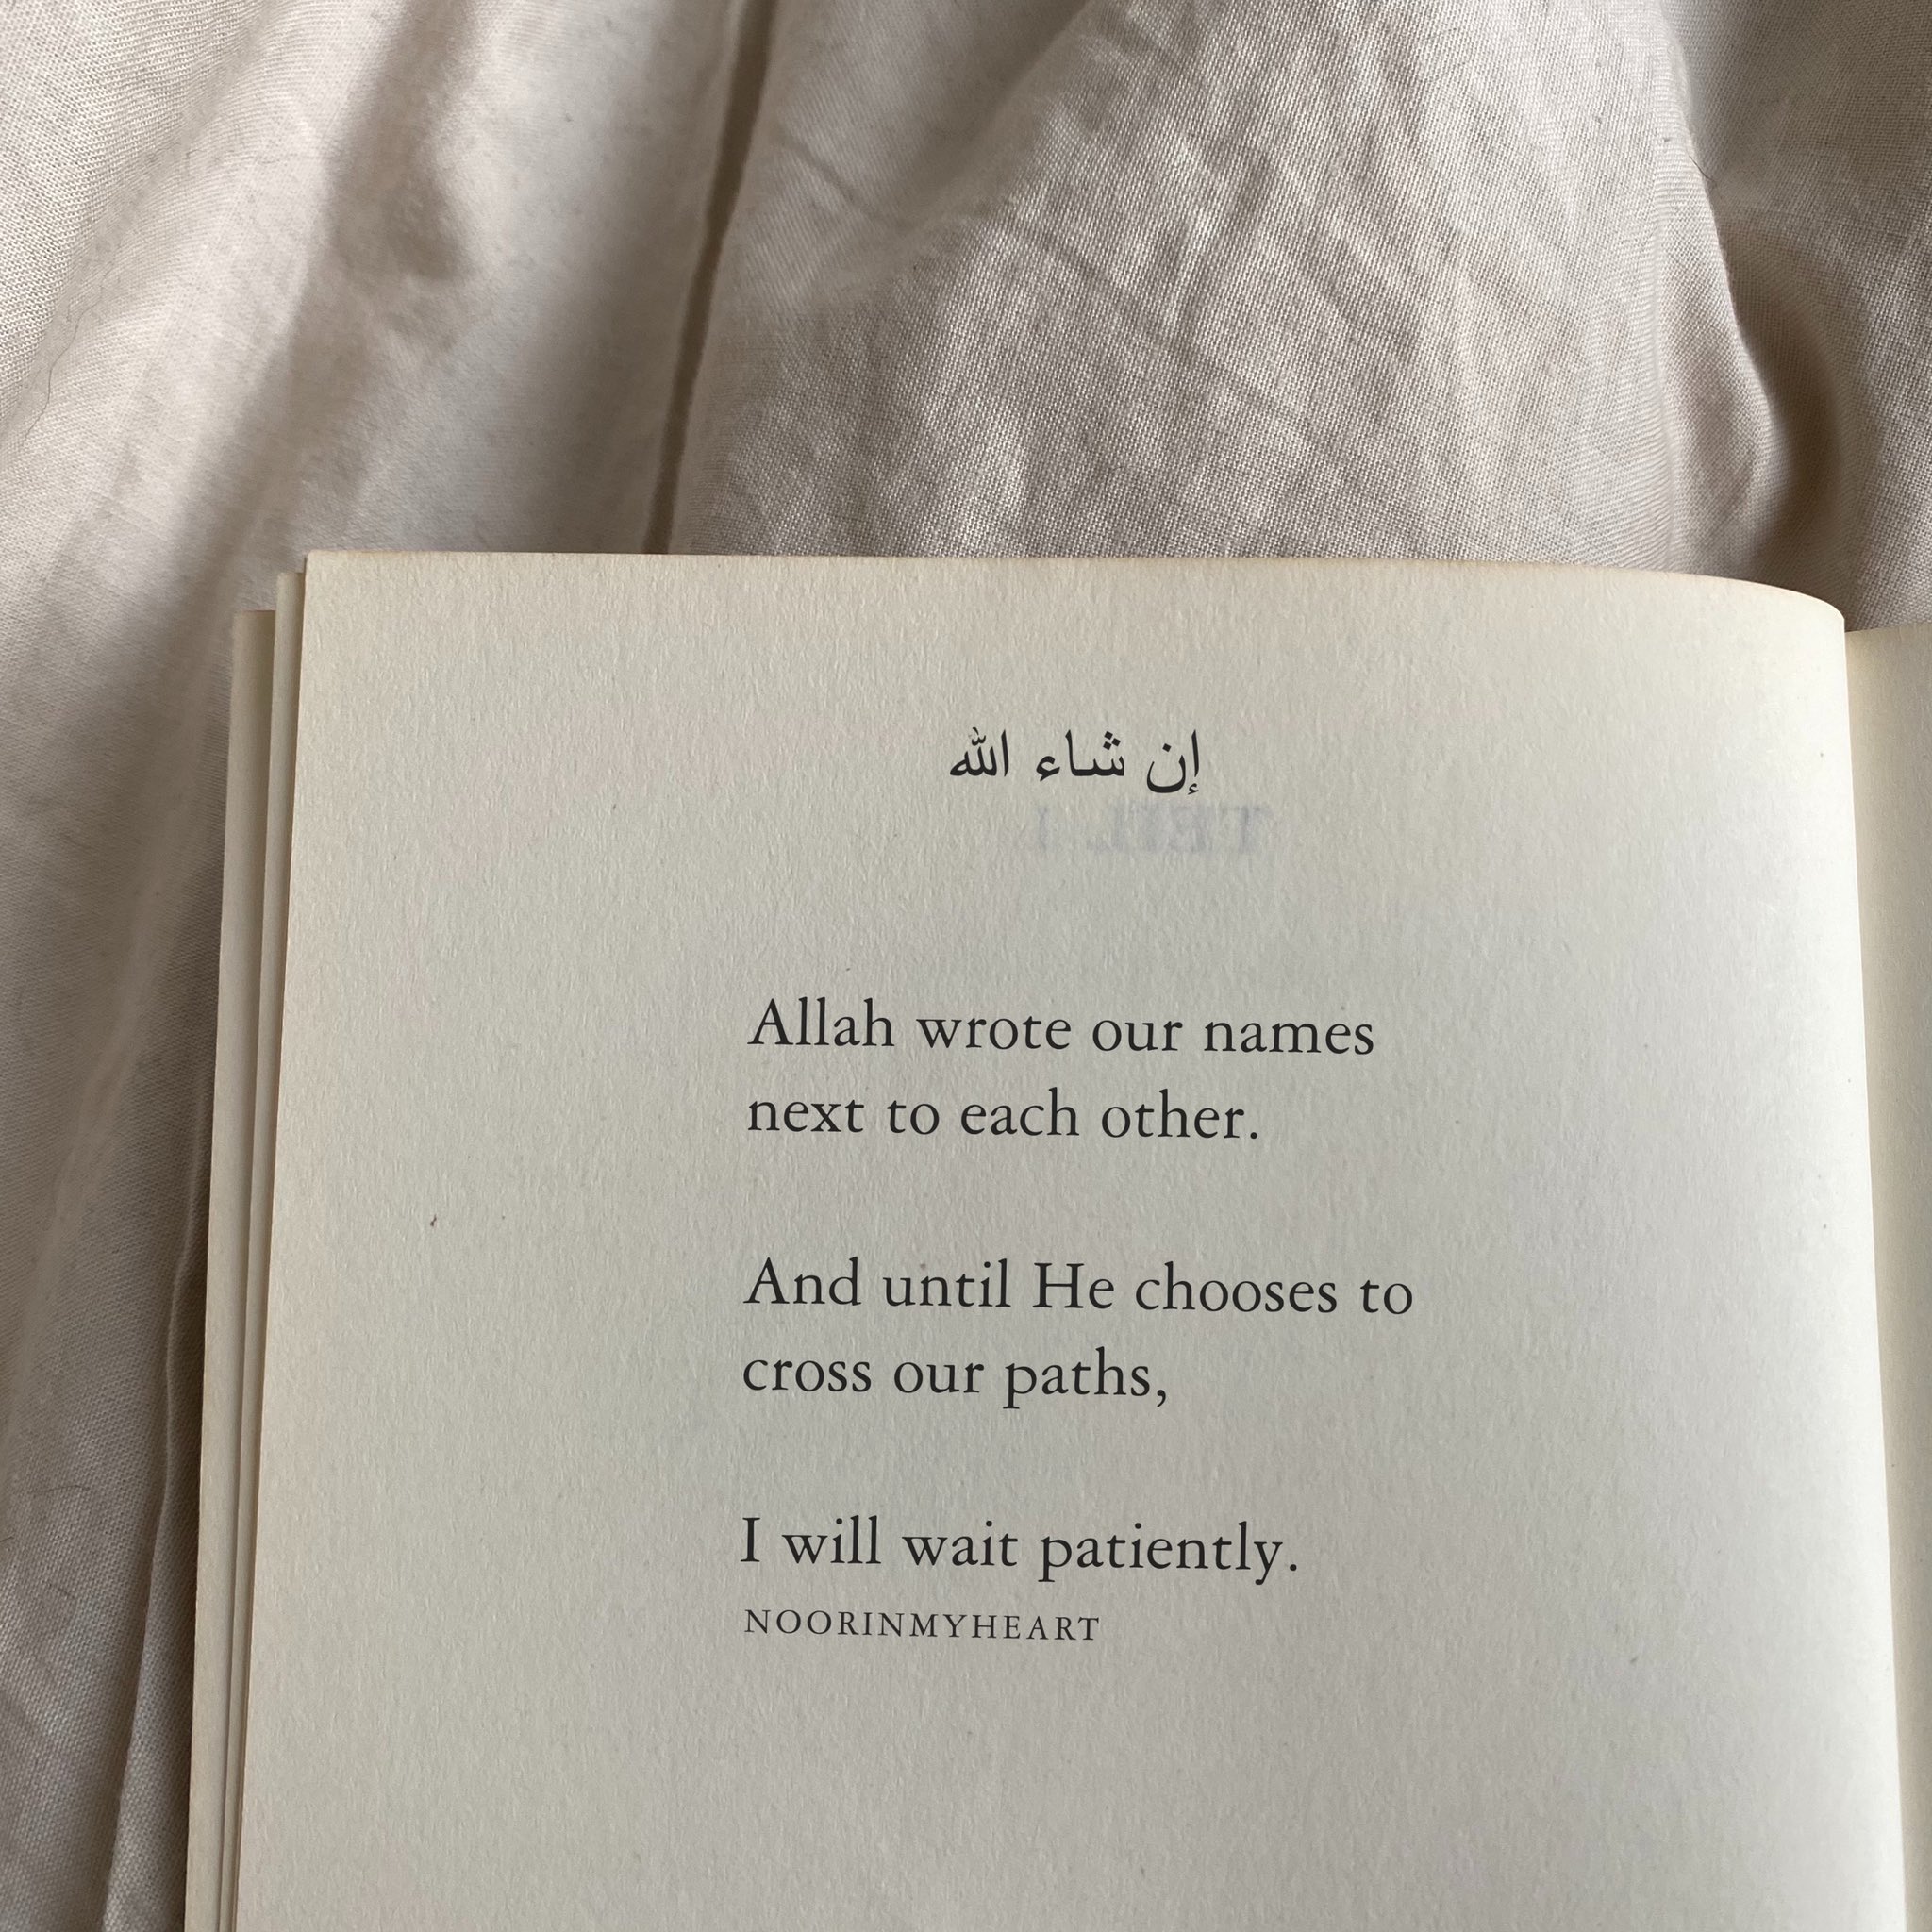 إن شاء الله
Allah wrote our names
next to each other.
And until He chooses to
cross our paths,
I will wait patiently.
NOORINMYHEART